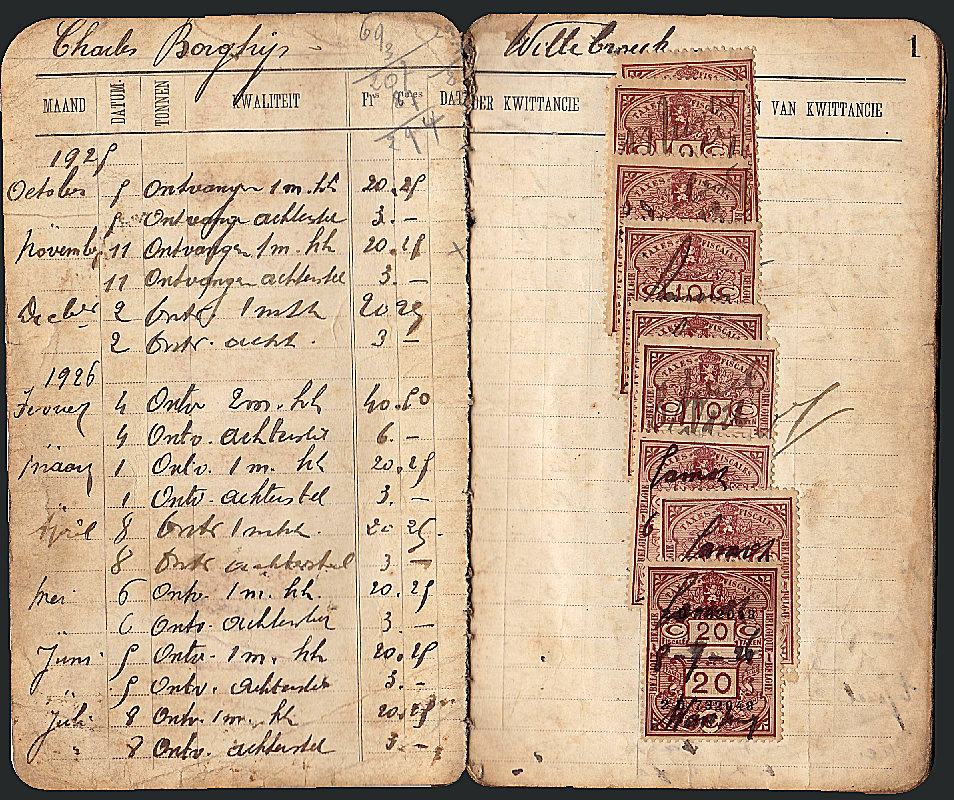 Charles Borghijs Willebroeck 1
69
207
87
294
MAAND DATUM. TONNEN KWALITEIT Frs Cmes DAT DER KWITTANCIE N VAN KWITTANCIE
1925
October 5 Ontvangen 1 m. hh 20.25
5 Ontvangen achterstel 3.—
November 11 Ontvangen 1 m. hh 20.25
11 Ontvangen achterstel 3.—
December 2 Ontv. 1 m hh 20 25
2 Ontv. acht. 3 —
1926
4 Ontv 2 m. hh 40.50
4 Ontv. achterstel 6.—
Maart 1 Ontv. 1 m. hh 20.25
1 Ontv. achterstel 3.—
April 8 Ontv 1 m hh. 20 25.
8 Ontv achterstel 3 —
Mei 6 Ontv. 1 m. hh. 20.25
6 Ontv. achterstel 3.—
Juni 5 Ontv. 1 m. hh 20.25
5 Ontv. achterstel 3.—
Juli 8 Ontv. 1 m. hh 20.25
" 8 Ontv. achterstel 3.—
TAXES FISCALES
10
TAXES FISCALES
10
TAXES FISCALES
20
8-7-26
20